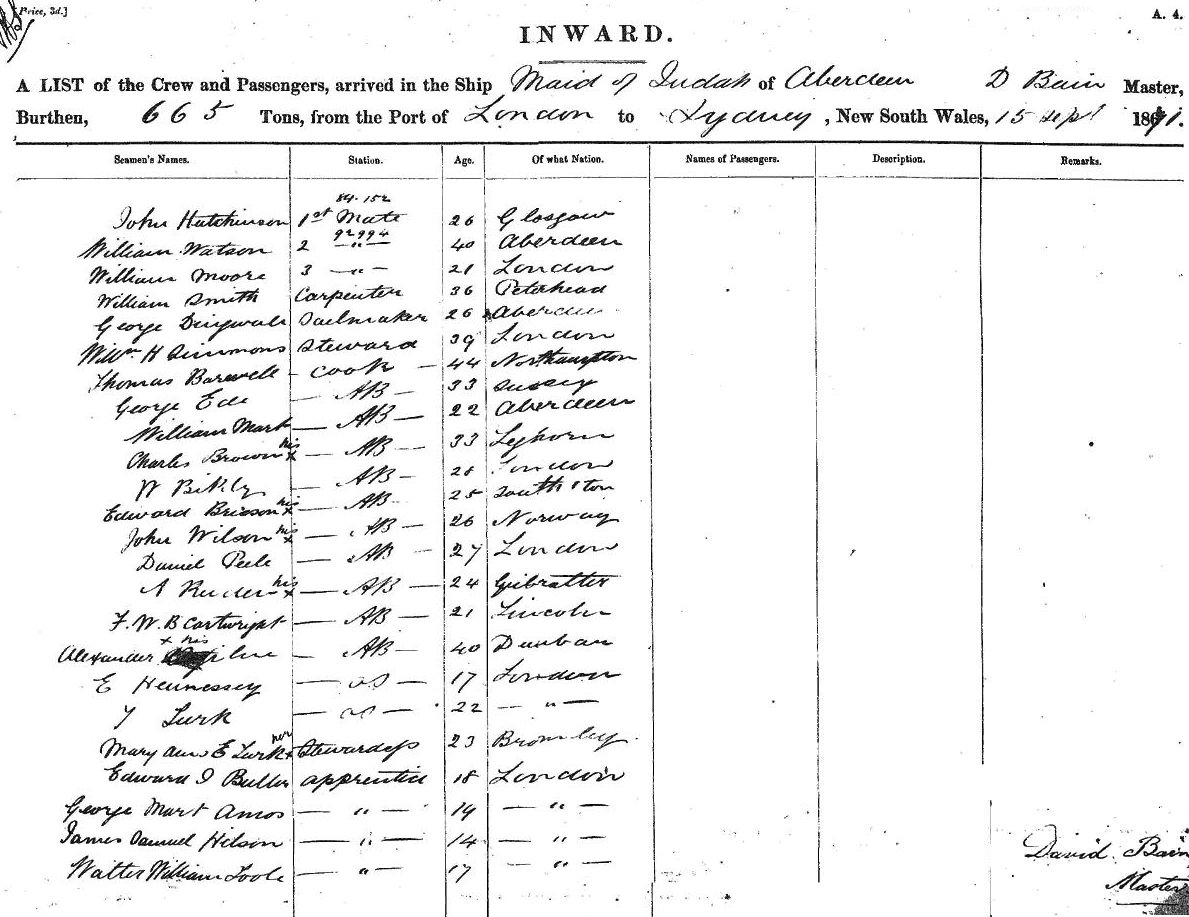 [Price, 3d.]
A. 4.
INWARD.
A LIST of the Crew and Passengers, arrived in the Ship Maid of Judah of Aberdeen D Bain Master,
Burthen, 665 Tons, from the Port of London to Sydney, New South Wales, 15 Sept 1871.
Seamen's Names. Station. Age. Of what Nation. Names of Passengers. Description. Remarks.
84.152
John Hutchinson 1st Mate 26 Glasgow
92994
William Watson 2 — " — 40 Aberdeen
William Moore 3 — " — 21 London
William Smith Carpenter 36 Peterhead
George Dingwall Sailmaker 26 Aberdeen
Willm H Simmons Steward 39 London
Thomas Barwell - Cook - 44 Northampton
George Ede — AB — 33 Sussex
William Mark — AB — 22 Aberdeen
Charles Brown his x — AB — 33 Leghorn
W — AB — 28 London
Edward his x — AB 25 Southton
John Wilson his x — AB — 26 Norway
Daniel Peele — AB — 27 London
A his x — AB — 24 Gibralter
F. W. B Cartwright — AB — 21 Lincoln
x his
Alexander — AB — 40 Dunbar
E Hennessey — OS — 17 London
T Lurk — OS — 22 — " —
Mary Ann E Lurk her x Stewardess 23 Bromley
Edward I Butler apprentice 18 London
George Mart Amos — " — 19 — " —
James Samuel Hilson — " — 14 — " —
Walter William Toole — " — 17 — " —
David Bain
Master